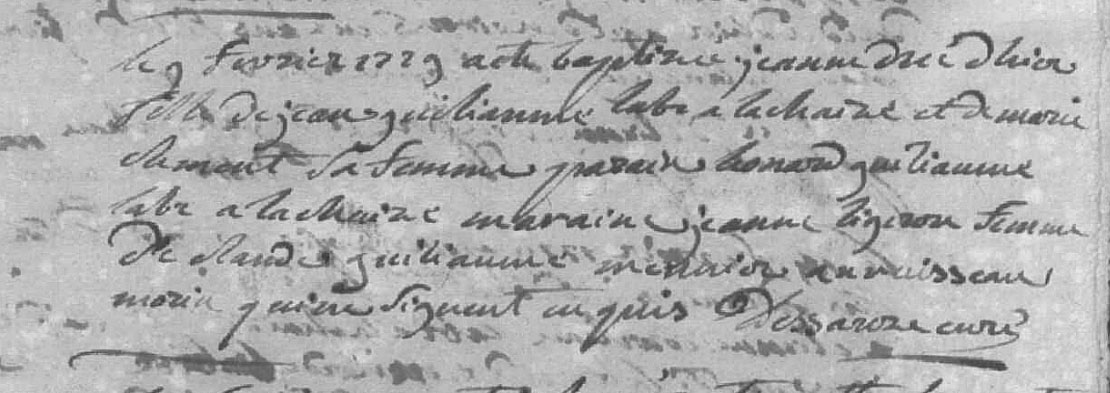 le 9 fevrier 1729 a ete baptizee jeanne née d hier
fille de jean guilianme labr a la chaize et de marie
clement sa femme parain leonard guilianme
labr a la chaize maraine jeanne ligeron femme
de claude guilianme meunier au ruisseau
morin qui ne signent enquis Dessaroze curé